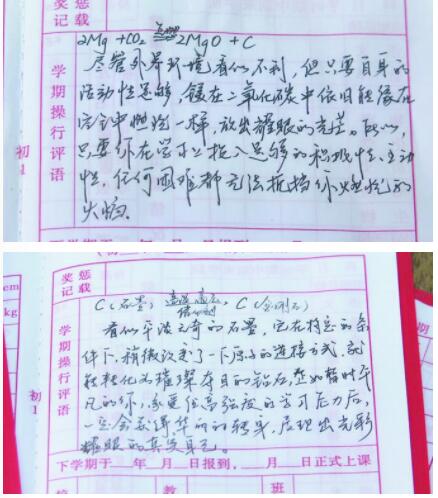 奖惩
记载
2Mg + CO₂ 点燃 2MgO + C
学期操行评语
初1
尽管外界环境看似不利，但只要自身的
活动性足够，镁在二氧化碳中依旧能像在
空气中燃烧一样，放出耀眼的光芒。所以，
只要你在学习上投入足够的积极性、主动
性，任何困难都无法抵挡你燃烧的
火焰。
下学期于 年 月 日报到
奖惩
记载
cm
kg
C（石墨） 高温 高压 C（金刚石）
学期操行评语
初1
看似平淡无奇的石墨，它在特定的条
件下，稍微改变了一下原子的连接方式，就
能转化为璀璨夺目的钻石，正如暂时平
凡的你，承受住高强度的学习压力后，
一定会获得华丽的转身，展现出光彩
耀眼的真实自己。
下学期于 年 月 日报到， 月 日正式上课
教
班